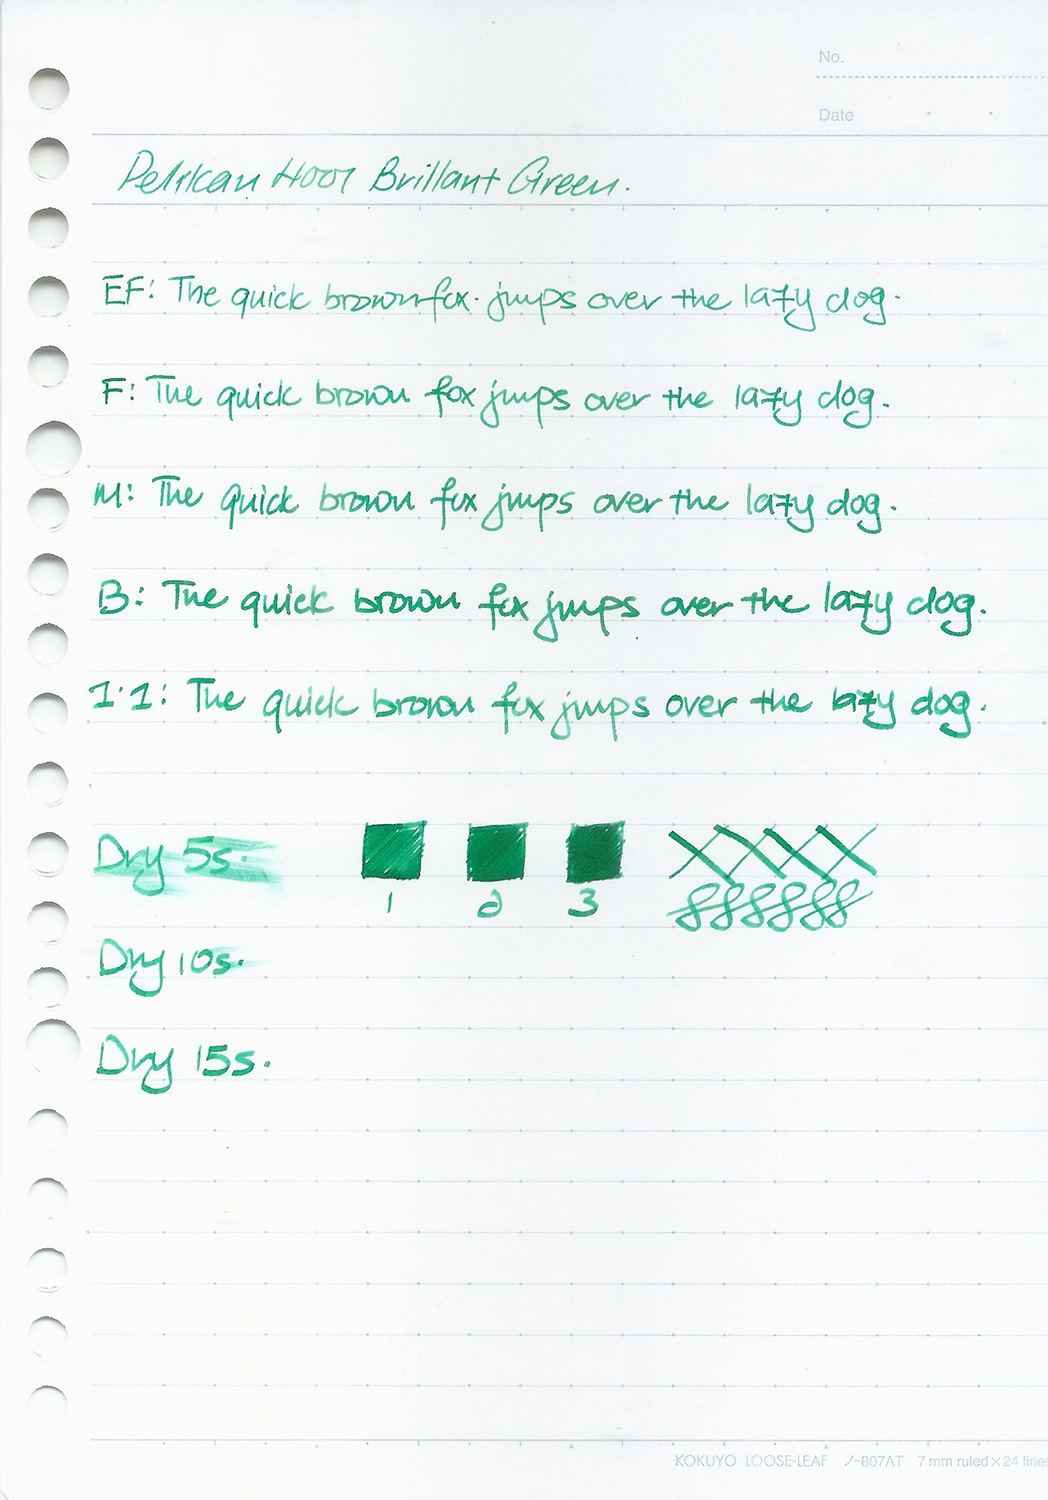 No.
Date
Pelikan 4001 Brillant Green.
EF: The quick brown fox jumps over the lazy dog.
F: The quick brown fox jumps over the lazy dog.
M: The quick brown fox jumps over the lazy dog.
B: The quick brown fox jumps over the lazy dog.
1.1: The quick brown fox jumps over the lazy dog.
Dry 5s.
1 2 3
Dry 10s.
Dry 15s.
KOKUYO LOOSE-LEAF ノ-807AT 7 mm ruled×24 lines